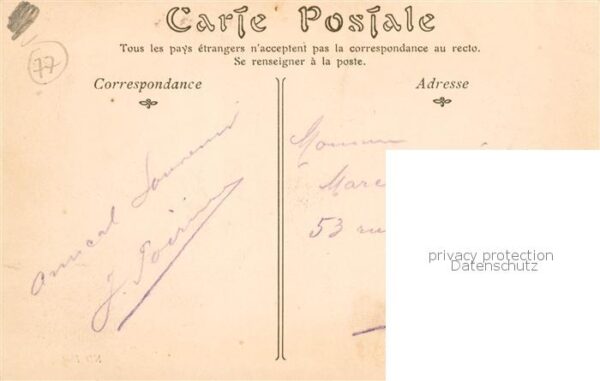 Carte Postale
Tous les pays étrangers n'acceptent pas la correspondance au recto.
Se renseigner à la poste.
77
Correspondance
Adresse
Amical Souvenir
J.
Monsieur
Marc
53 rue
privacy protection
Datenschutz